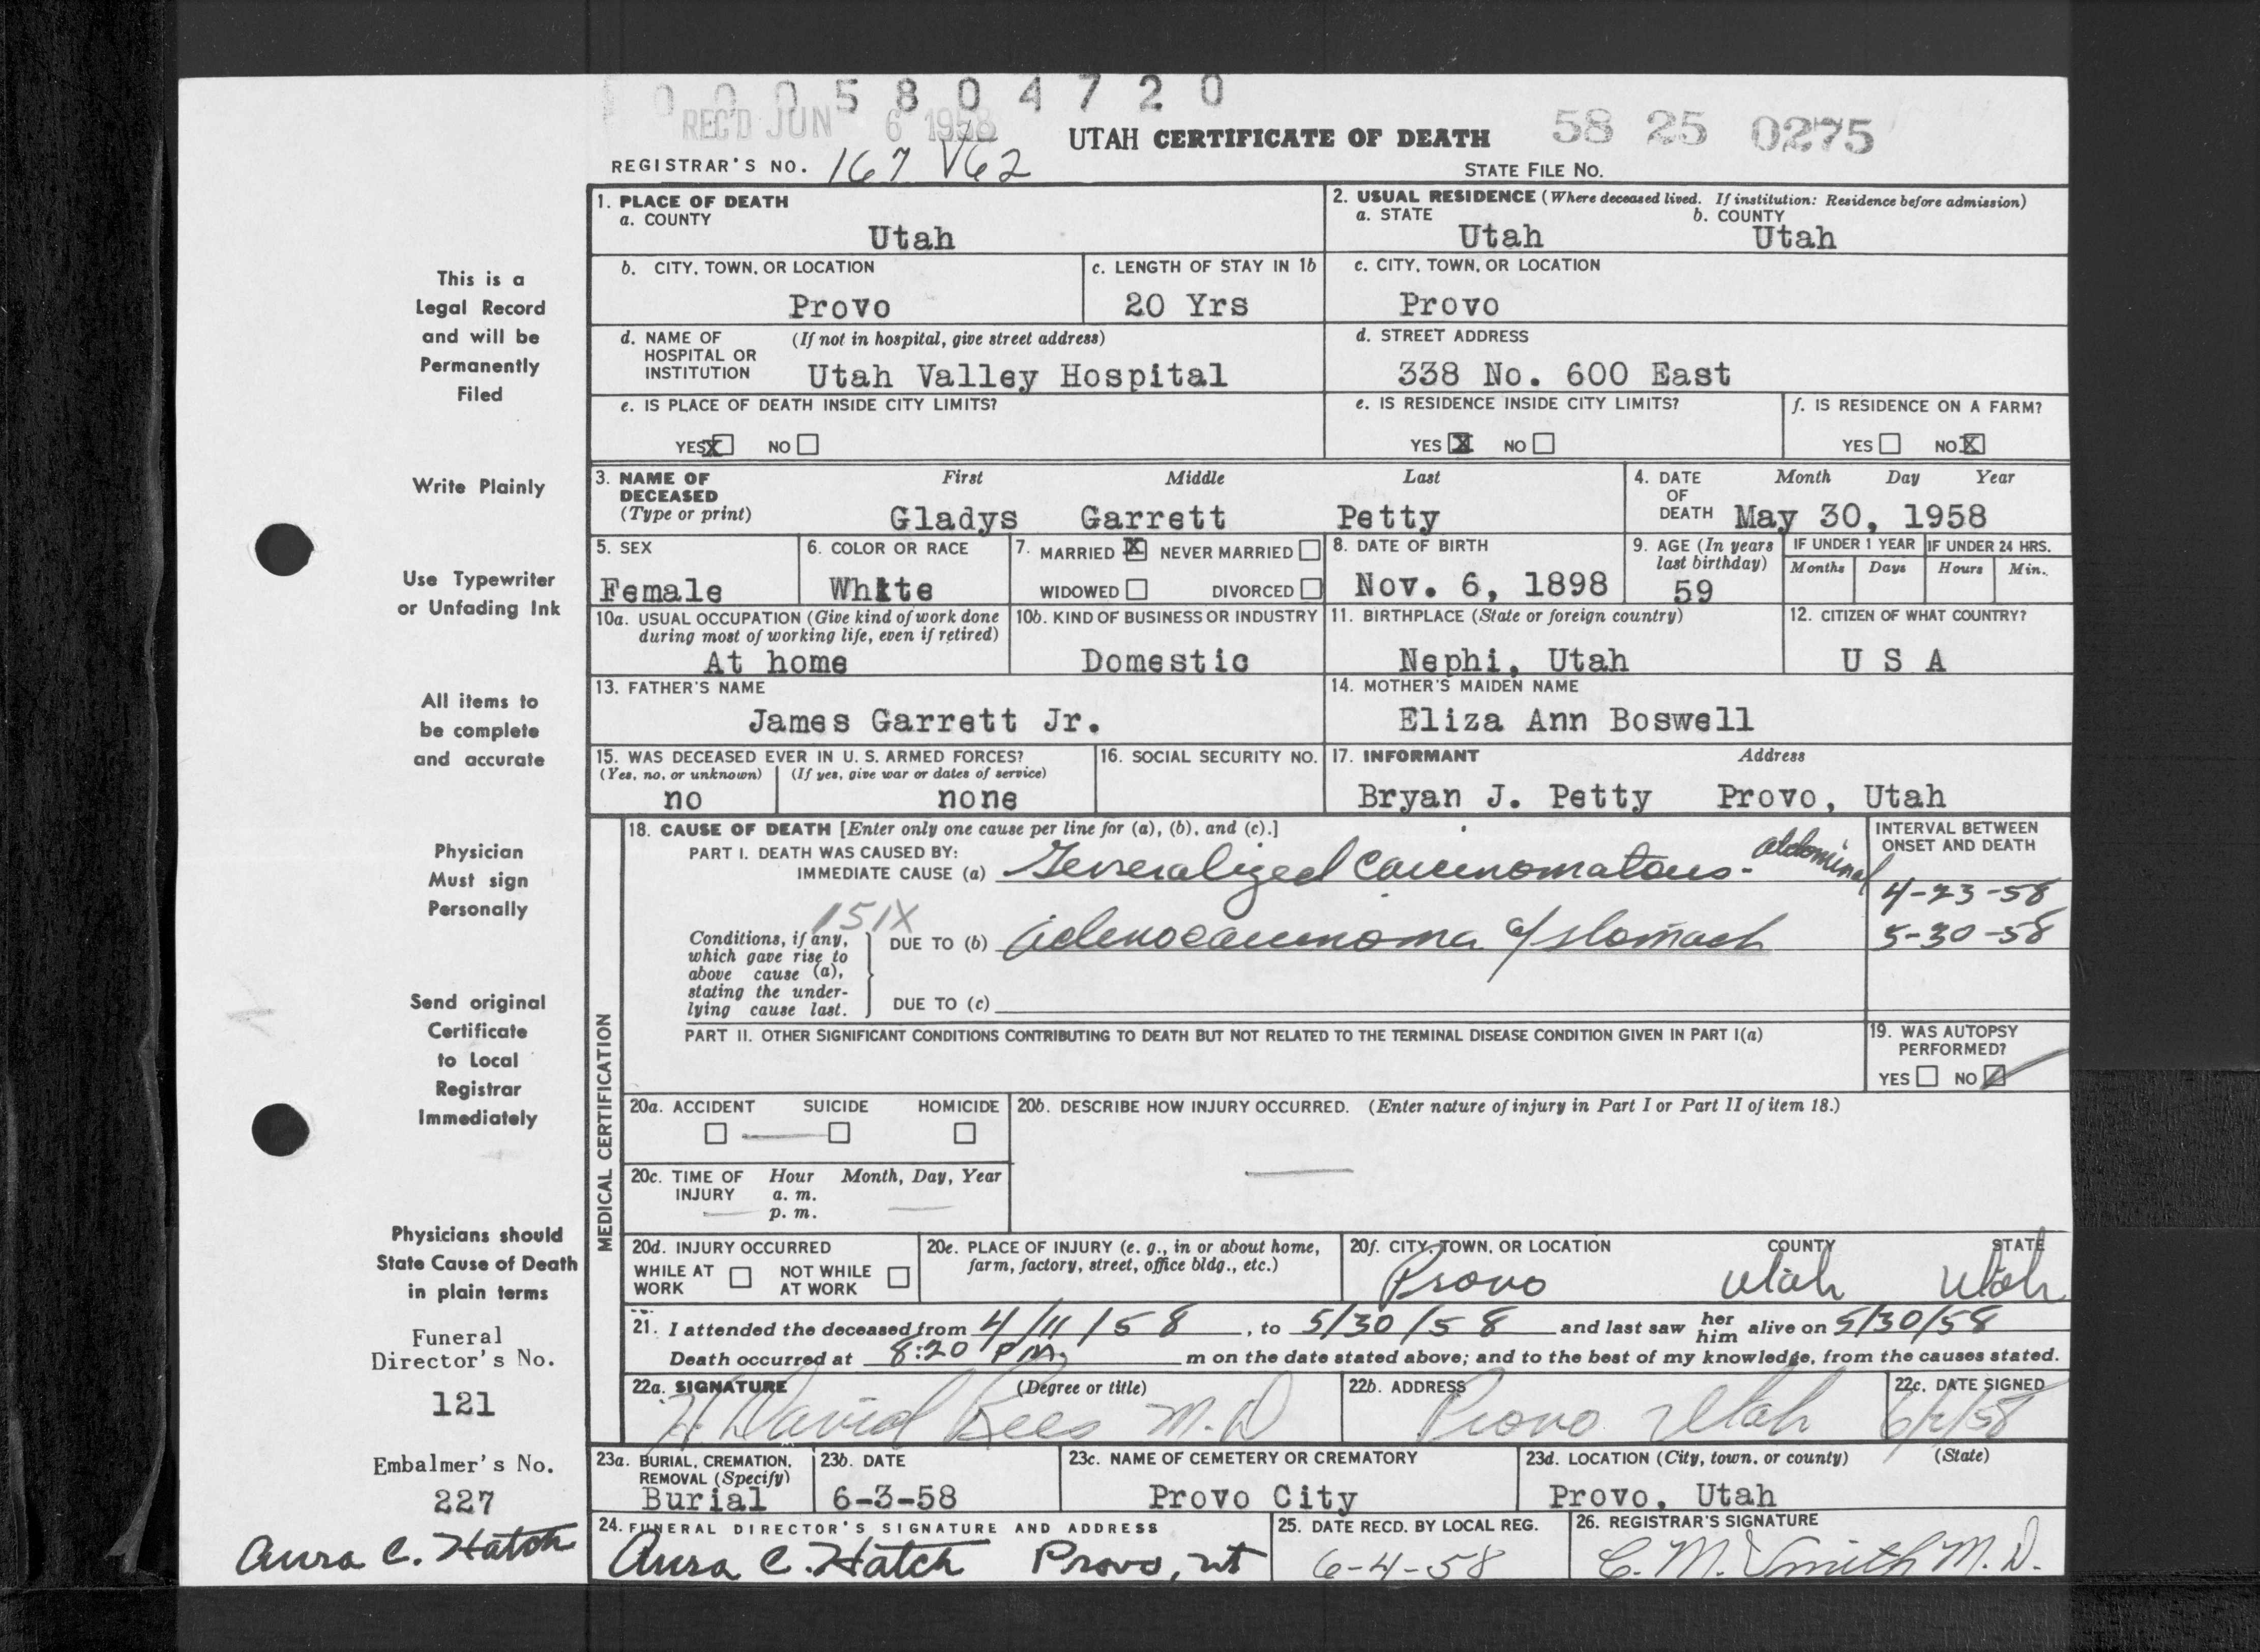 0 0 0 5 8 0 4 7 2 0
REC'D JUN 6 1958
UTAH CERTIFICATE OF DEATH
58 25 0275
REGISTRAR'S NO. 167 V62
STATE FILE NO.
1. PLACE OF DEATH
a. COUNTY
Utah
2. USUAL RESIDENCE (Where deceased lived. If institution: Residence before admission)
a. STATE
Utah
b. COUNTY
Utah
b. CITY, TOWN, OR LOCATION
Provo
c. LENGTH OF STAY IN 1b
20 Yrs
c. CITY, TOWN, OR LOCATION
Provo
d. NAME OF HOSPITAL OR INSTITUTION
(If not in hospital, give street address)
Utah Valley Hospital
d. STREET ADDRESS
338 No. 600 East
e. IS PLACE OF DEATH INSIDE CITY LIMITS?
YES X NO
e. IS RESIDENCE INSIDE CITY LIMITS?
YES X NO
f. IS RESIDENCE ON A FARM?
YES NO X
3. NAME OF DECEASED
(Type or print)
First Middle Last
Gladys Garrett Petty
4. DATE OF DEATH
Month Day Year
May 30, 1958
5. SEX
Female
6. COLOR OR RACE
White
7. MARRIED X NEVER MARRIED
WIDOWED DIVORCED
8. DATE OF BIRTH
Nov. 6, 1898
9. AGE (In years last birthday)
59
IF UNDER 1 YEAR
Months Days
IF UNDER 24 HRS.
Hours Min.
10a. USUAL OCCUPATION (Give kind of work done during most of working life, even if retired)
At home
10b. KIND OF BUSINESS OR INDUSTRY
Domestic
11. BIRTHPLACE (State or foreign country)
Nephi, Utah
12. CITIZEN OF WHAT COUNTRY?
U S A
13. FATHER'S NAME
James Garrett Jr.
14. MOTHER'S MAIDEN NAME
Eliza Ann Boswell
15. WAS DECEASED EVER IN U. S. ARMED FORCES?
(Yes, no, or unknown) (If yes, give war or dates of service)
no none
16. SOCIAL SECURITY NO.
17. INFORMANT Address
Bryan J. Petty Provo, Utah
MEDICAL CERTIFICATION
18. CAUSE OF DEATH [Enter only one cause per line for (a), (b), and (c).]
PART I. DEATH WAS CAUSED BY:
IMMEDIATE CAUSE (a) Generalized Carcinomatous - abdominal
INTERVAL BETWEEN ONSET AND DEATH
4-23-58
5-30-58
151X
Conditions, if any, which gave rise to above cause (a), stating the underlying cause last.
DUE TO (b) adenocarcinoma of stomach
DUE TO (c)
PART II. OTHER SIGNIFICANT CONDITIONS CONTRIBUTING TO DEATH BUT NOT RELATED TO THE TERMINAL DISEASE CONDITION GIVEN IN PART I(a)
19. WAS AUTOPSY PERFORMED?
YES NO
20a. ACCIDENT SUICIDE HOMICIDE
20b. DESCRIBE HOW INJURY OCCURRED. (Enter nature of injury in Part I or Part II of item 18.)
20c. TIME OF INJURY Hour Month, Day, Year
a. m.
p. m.
20d. INJURY OCCURRED
WHILE AT WORK NOT WHILE AT WORK
20e. PLACE OF INJURY (e. g., in or about home, farm, factory, street, office bldg., etc.)
20f. CITY, TOWN, OR LOCATION COUNTY STATE
Provo Utah Utah
21. I attended the deceased from 4/11/58, to 5/30/58 and last saw her him alive on 5/30/58
Death occurred at 8:20 PM m on the date stated above; and to the best of my knowledge, from the causes stated.
22a. SIGNATURE (Degree or title)
H David Rees M.D
22b. ADDRESS
Provo Utah
22c. DATE SIGNED
6/2/58
23a. BURIAL, CREMATION, REMOVAL (Specify)
Burial
23b. DATE
6-3-58
23c. NAME OF CEMETERY OR CREMATORY
Provo City
23d. LOCATION (City, town, or county) (State)
Provo, Utah
24. FUNERAL DIRECTOR'S SIGNATURE AND ADDRESS
Aura C. Hatch Provo, Ut
25. DATE RECD. BY LOCAL REG.
6-4-58
26. REGISTRAR'S SIGNATURE
C. M. Smith M. D.
This is a
Legal Record
and will be
Permanently
Filed
Write Plainly
Use Typewriter
or Unfading Ink
All items to
be complete
and accurate
Physician
Must sign
Personally
Send original
Certificate
to Local
Registrar
Immediately
Physicians should
State Cause of Death
in plain terms
Funeral
Director's No.
121
Embalmer's No.
227
Aura C. Hatch